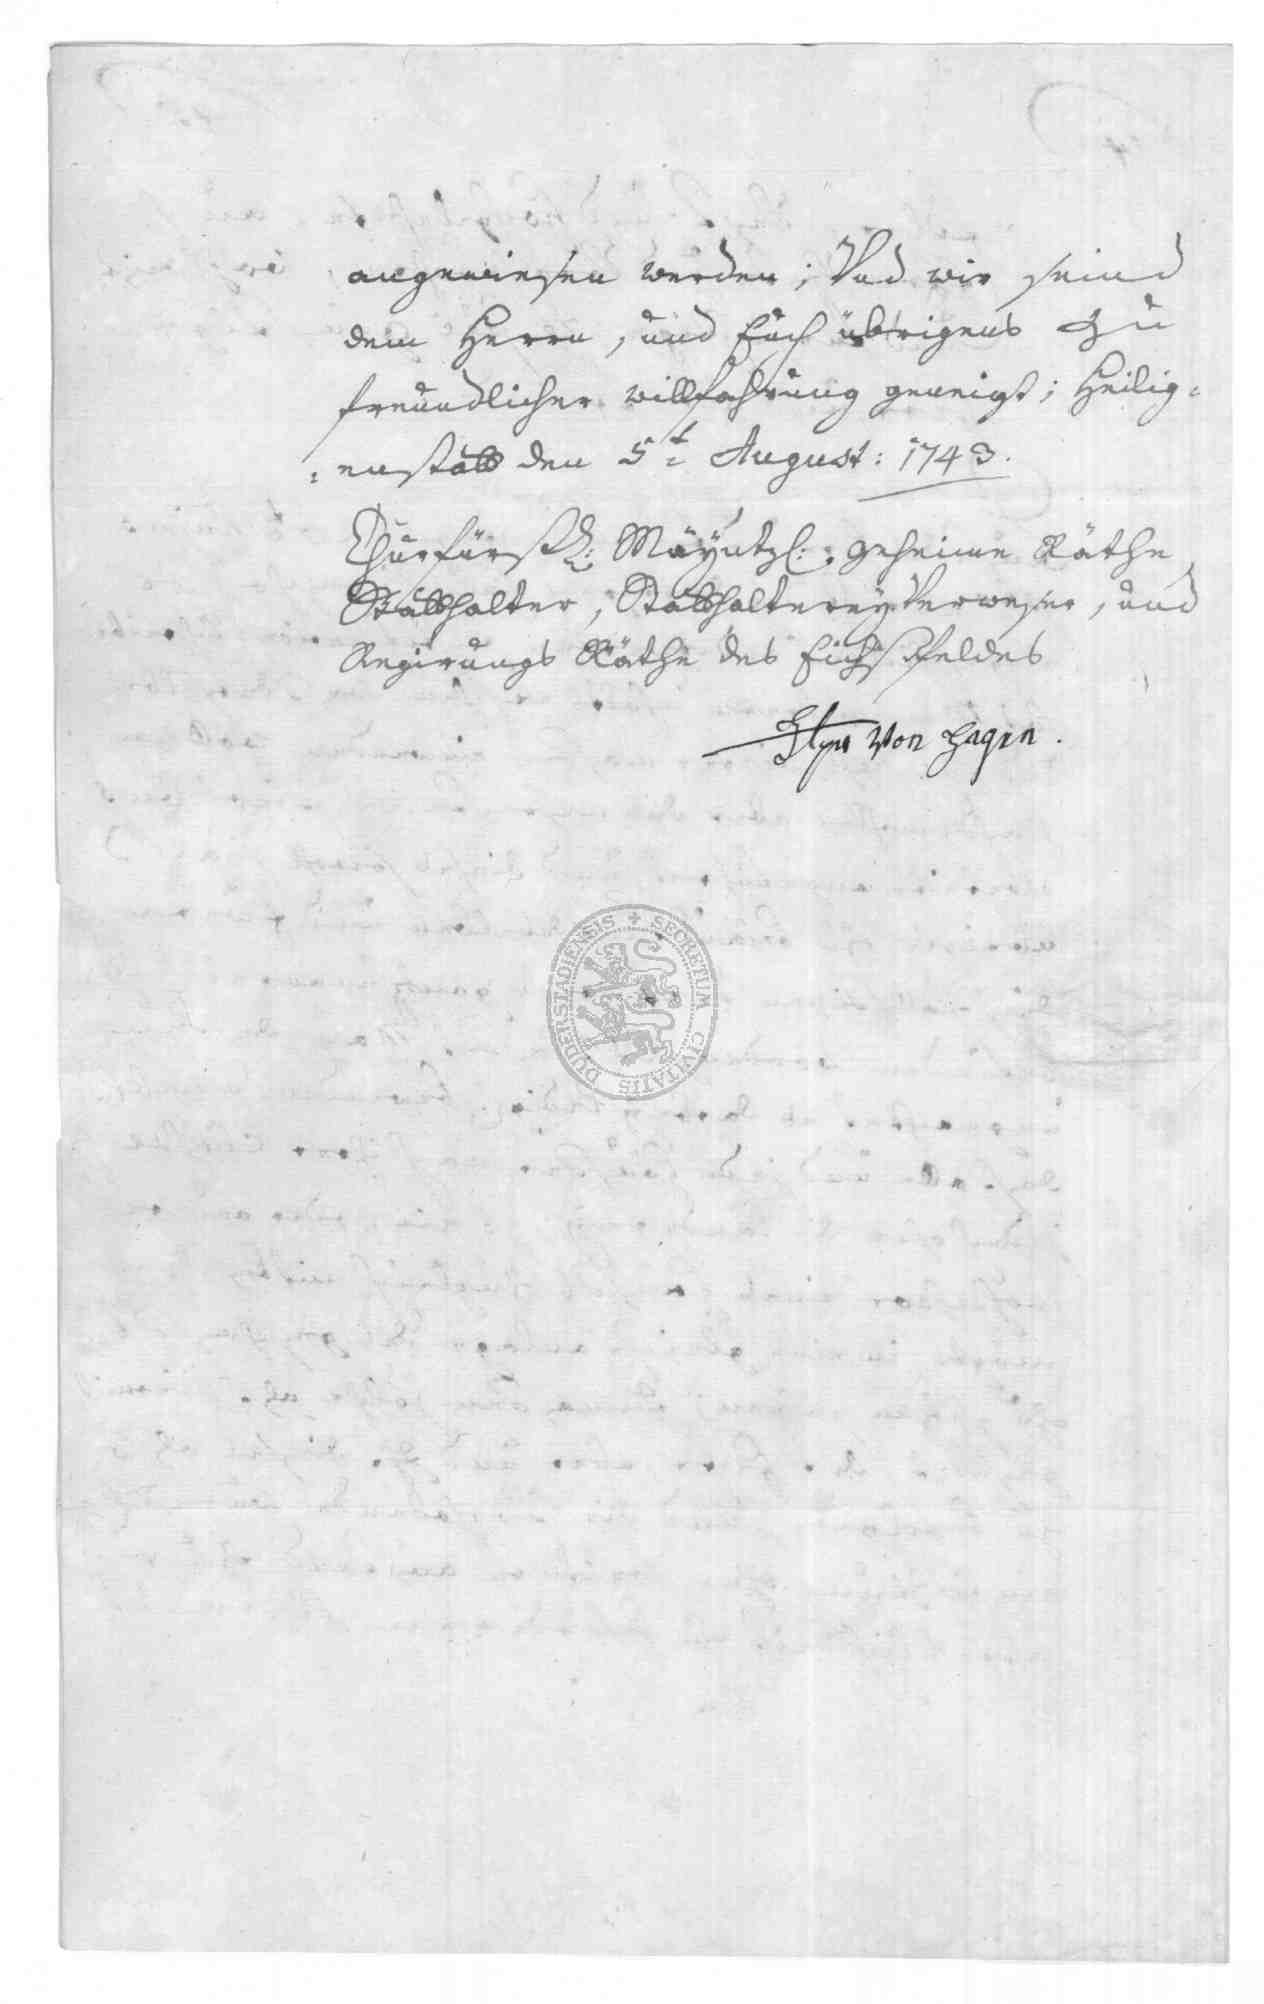 angewiesen werden; Und wir seind
dem Herrn, und Euch übrigens zu
freundlicher willfahrung geneigt; Heilig=
=enstatt den 5t= August: 1743.
Churfürstl: Mäyntzl: geheime Räthe
Statthalter, Statthalterey Verweser, und
Regirungs Räthe des Eichsfeldes
von Hagen.
SECRETUM CIVITATIS DUDERSTADIENSIS